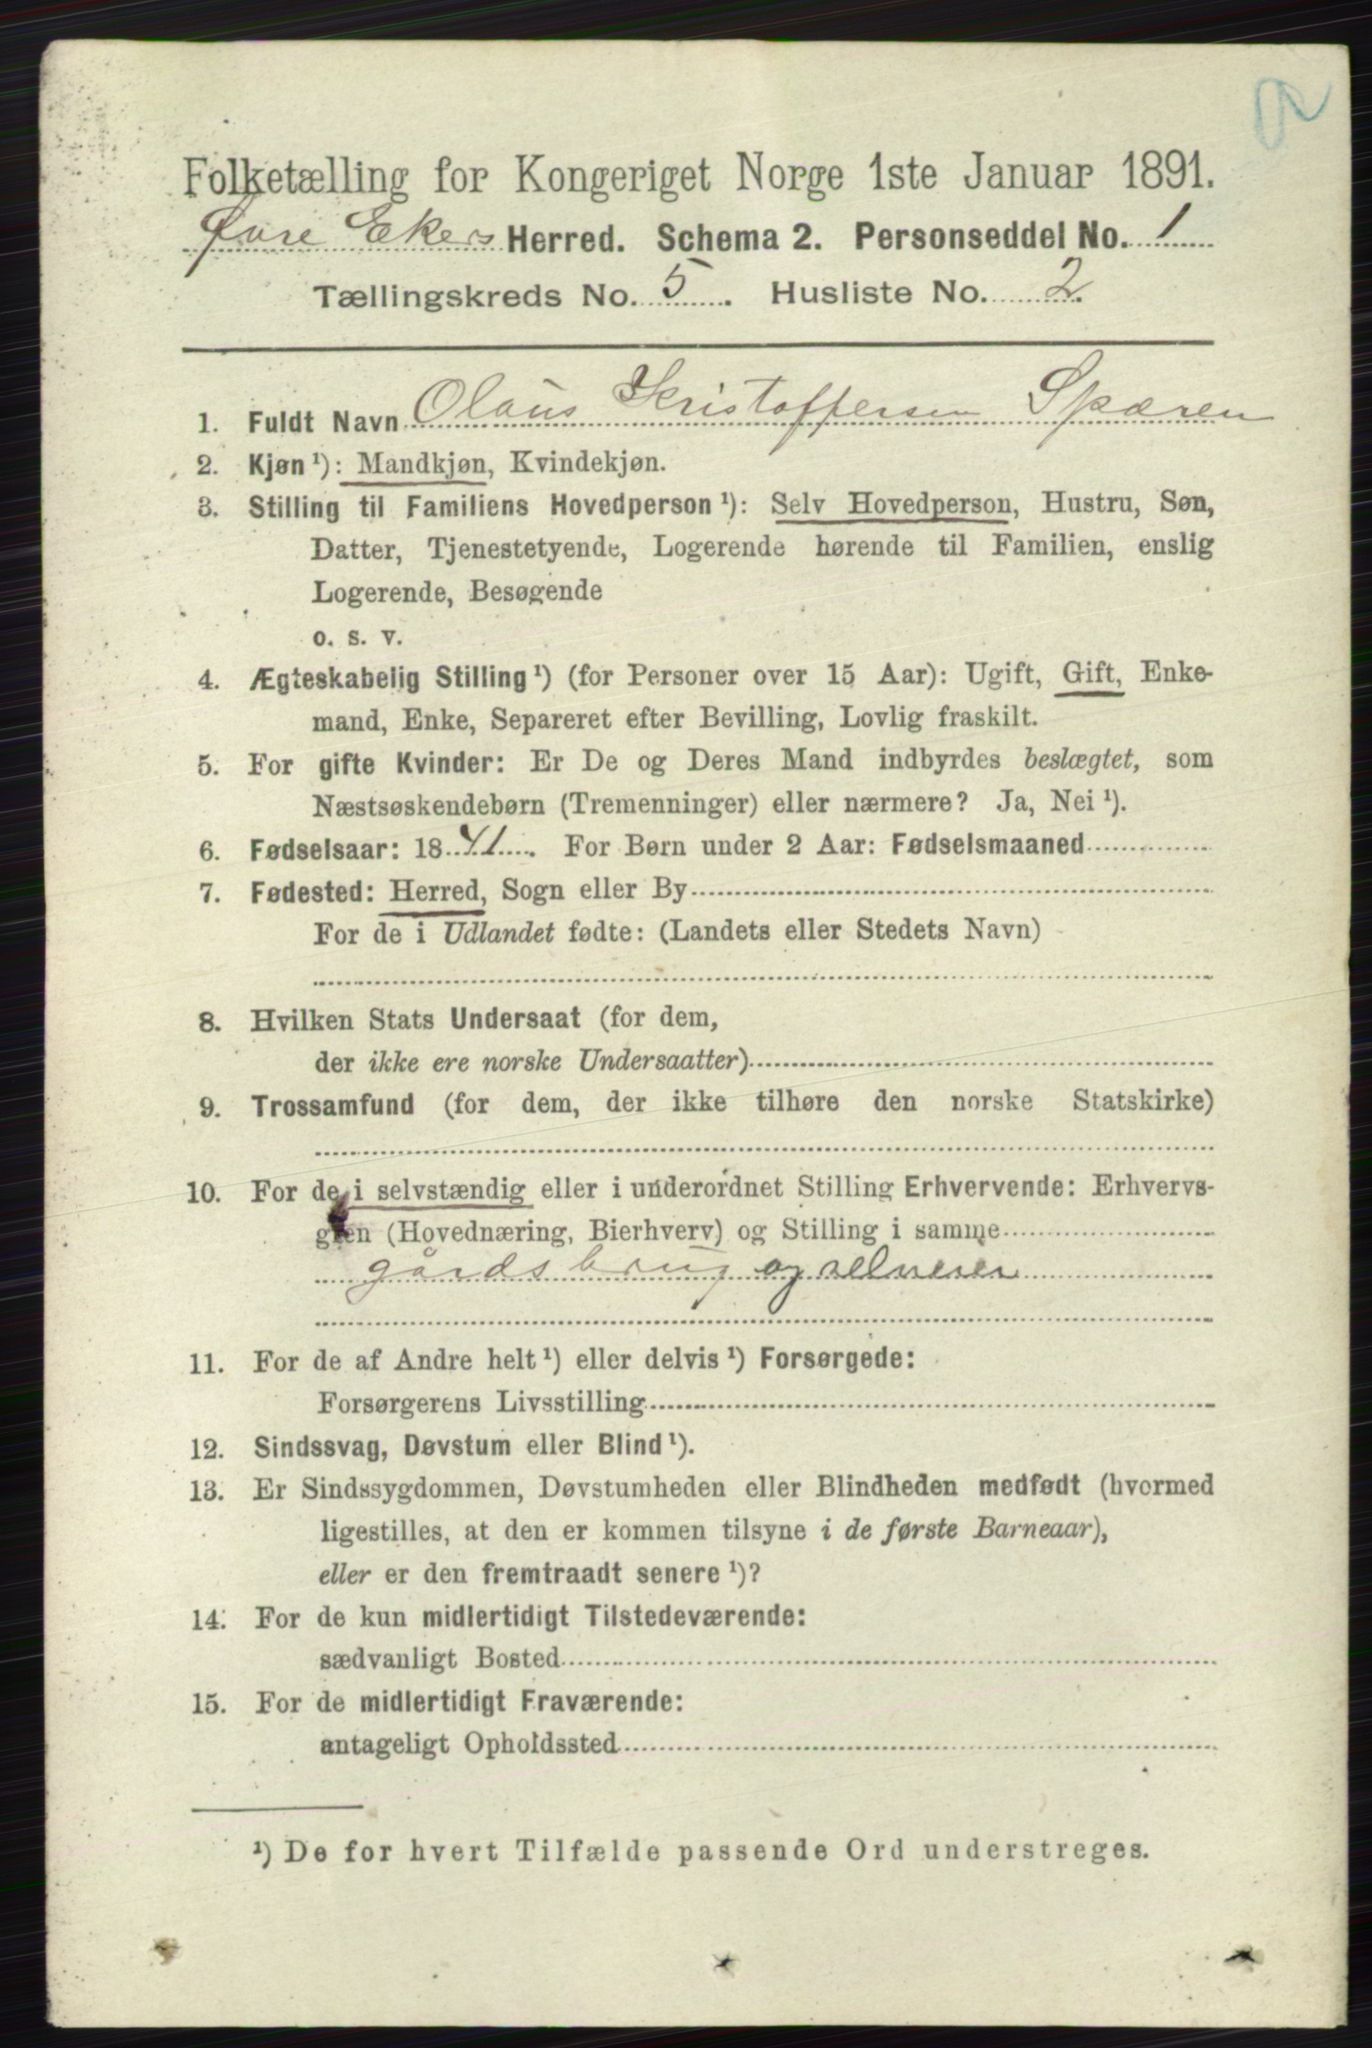 Folketælling for Kongeriget Norge 1ste Januar 1891.
Øvre Ekers Herred. Schema 2. Personseddel No. 1
Tællingskreds No. 5. Husliste No. 2.
1. Fuldt Navn Olaus Kristoffersen Spæren
2. Kjøn¹): Mandkjøn, Kvindekjøn.
3. Stilling til Familiens Hovedperson¹): Selv Hovedperson, Hustru, Søn,
Datter, Tjenestetyende, Logerende hørende til Familien, enslig
Logerende, Besøgende
o. s. v.
4. Ægteskabelig Stilling¹) (for Personer over 15 Aar): Ugift, Gift, Enke-
mand, Enke, Separeret efter Bevilling, Lovlig fraskilt.
5. For gifte Kvinder: Er De og Deres Mand indbyrdes beslægtet, som
Næstsøskendebørn (Tremenninger) eller nærmere? Ja, Nei¹).
6. Fødselsaar: 1841. For Børn under 2 Aar: Fødselsmaaned
7. Fødested: Herred, Sogn eller By
For de i Udlandet fødte: (Landets eller Stedets Navn)
8. Hvilken Stats Undersaat (for dem,
der ikke ere norske Undersaatter)
9. Trossamfund (for dem, der ikke tilhøre den norske Statskirke)
10. For de i selvstændig eller i underordnet Stilling Erhvervende: Erhvervs-
gren (Hovednæring, Bierhverv) og Stilling i samme
gårdsbrug og selveier
11. For de af Andre helt¹) eller delvis¹) Forsørgede:
Forsørgerens Livsstilling
12. Sindssvag, Døvstum eller Blind¹).
13. Er Sindssygdommen, Døvstumheden eller Blindheden medfødt (hvormed
ligestilles, at den er kommen tilsyne i de første Barneaar),
eller er den fremtraadt senere¹)?
14. For de kun midlertidigt Tilstedeværende:
sædvanligt Bosted
15. For de midlertidigt Fraværende:
antageligt Opholdssted
¹) De for hvert Tilfælde passende Ord understreges.